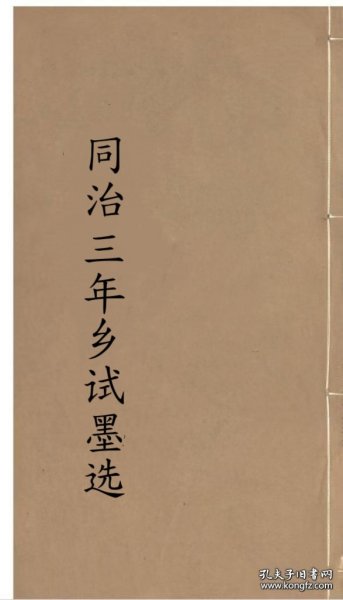 同治三年乡试墨选
孔夫子旧书网
www.kongfz.com